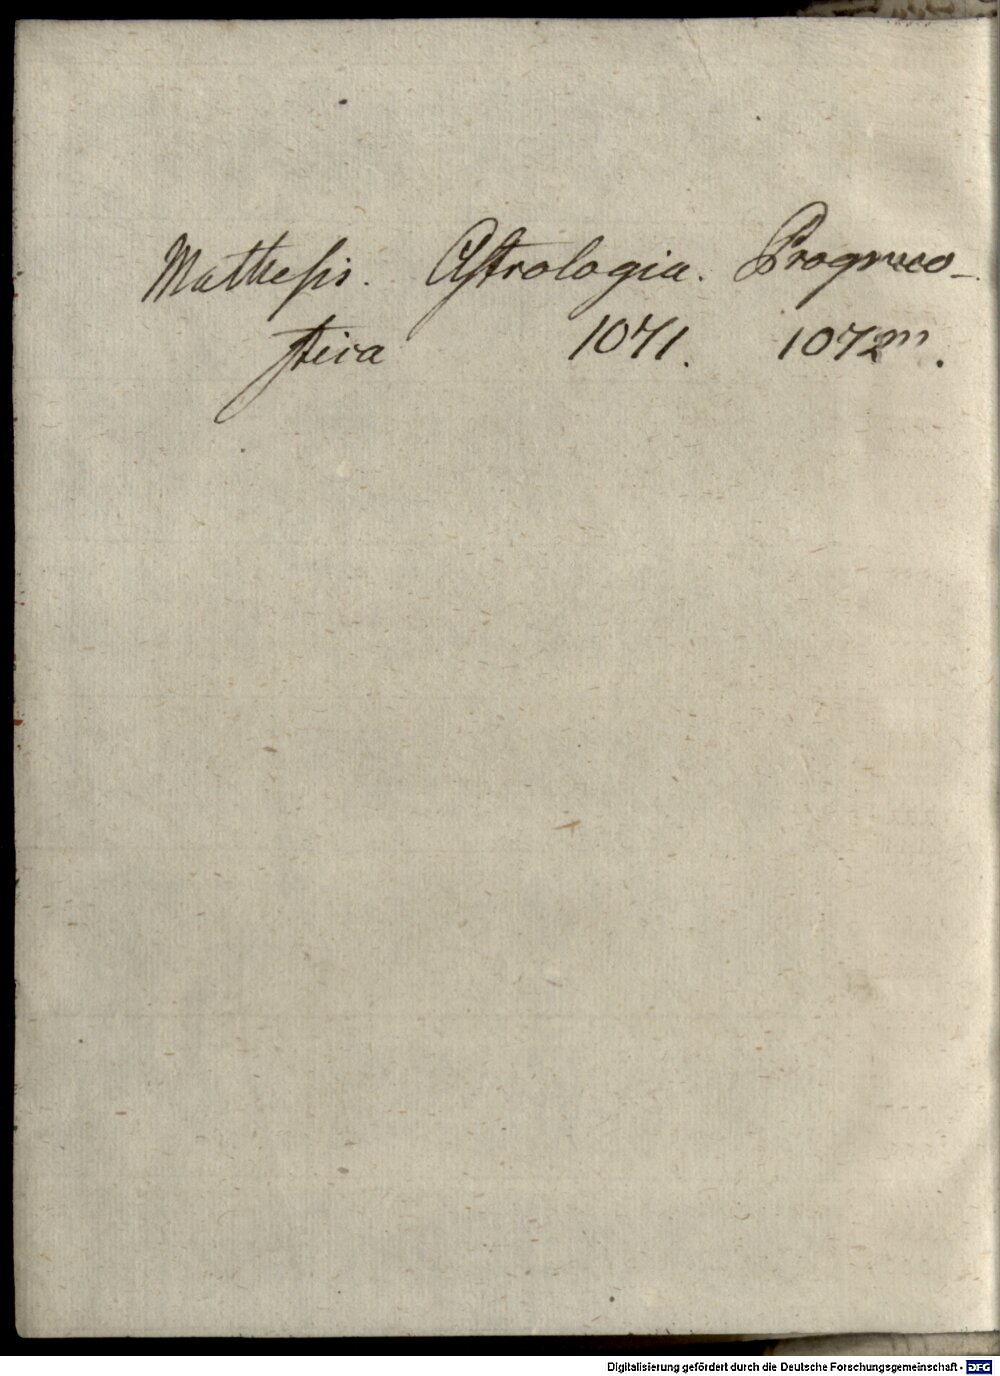 Mathesis. Astrologia. Prognico-
stica 1071. 1072m.
Digitalisierung gefördert durch die Deutsche Forschungsgemeinschaft - DFG